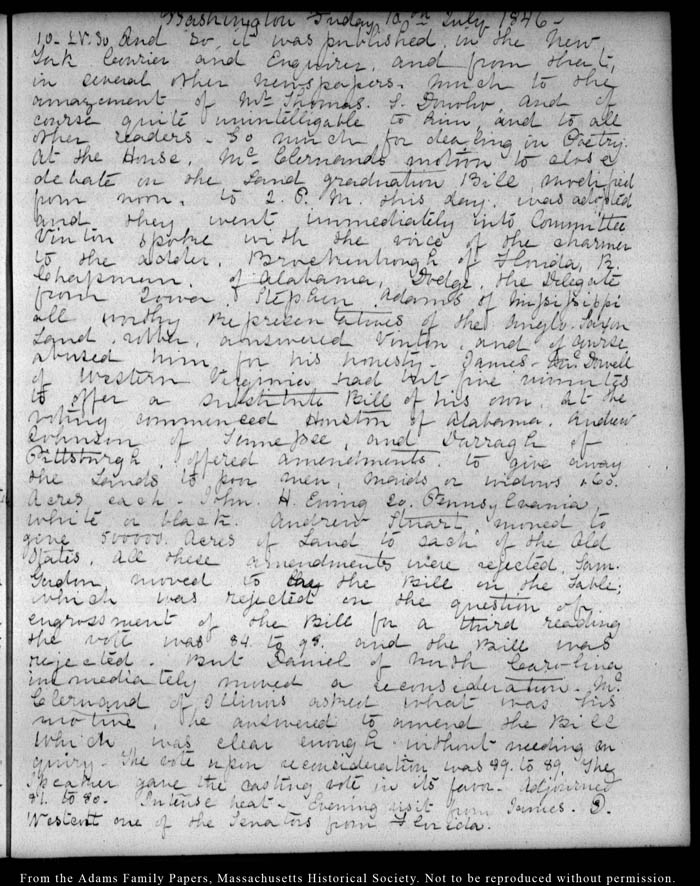 Washington Friday 10th July 1846-
10. IV.30 And so, it was published, in the New
York Courier and Enquirer, and from that,
in several other newspapers. much to the
amazement of Mr Thomas. L. and of
course quite unintelligable to him and to all
other readers - So much for dealing in Poetry.
At the House, Mc Clernands motion to close
debate on the Land graduation Bill, modified
from noon, to 2. P. M. this day. was adopted
and they went immediately into Committee
Vinton spoke with the voice of the charmer
to the adder. Brockenbrough of Florida, R.
Chapman, of Alabama, Dodge, the Delegate
from Iowa, & Stephen Adams of Mississippi
all worthy Representatives of the Anglo, Saxon
Land robber, answered Vinton, and of course
abused him for his honesty - James Mc Dowell
of Western Virginia had but five minutes
to offer a substitute Bill of his own. At the
voting commenced Houston of Alabama. Andrew
Johnson of Tennessee, and Darragh of
Pittsburgh, offered amendments. to give away
the Lands to poor men, maids or widows 160.
Acres each - John. H. Ewing do. Pennsylvania
white or black. Andrew Stuart, moved to
give 500000. Acres of Land to each of the Old
States, all these amendments were rejected. Sam.
Gordon, moved to lay the Bill on the Table;
which was rejected on the question of
engrossment of the Bill for a third reading
the vote was 84. to 98. and the Bill was
rejected. But Daniel of North Carolina
immediately moved a reconsideration. Mc
Clernand of Illinois asked what was his
motive, he answered to amend the Bill
which was clear enough without needing en
quiry - The vote upon reconsideration was 89. to 89. The
Speaker gave the casting vote in its favor. Adjourned
81. to 80. Intense heat - Evening visit from James. D.
Westcott one of the Senators from Florida.
From the Adams Family Papers, Massachusetts Historical Society. Not to be reproduced without permission.